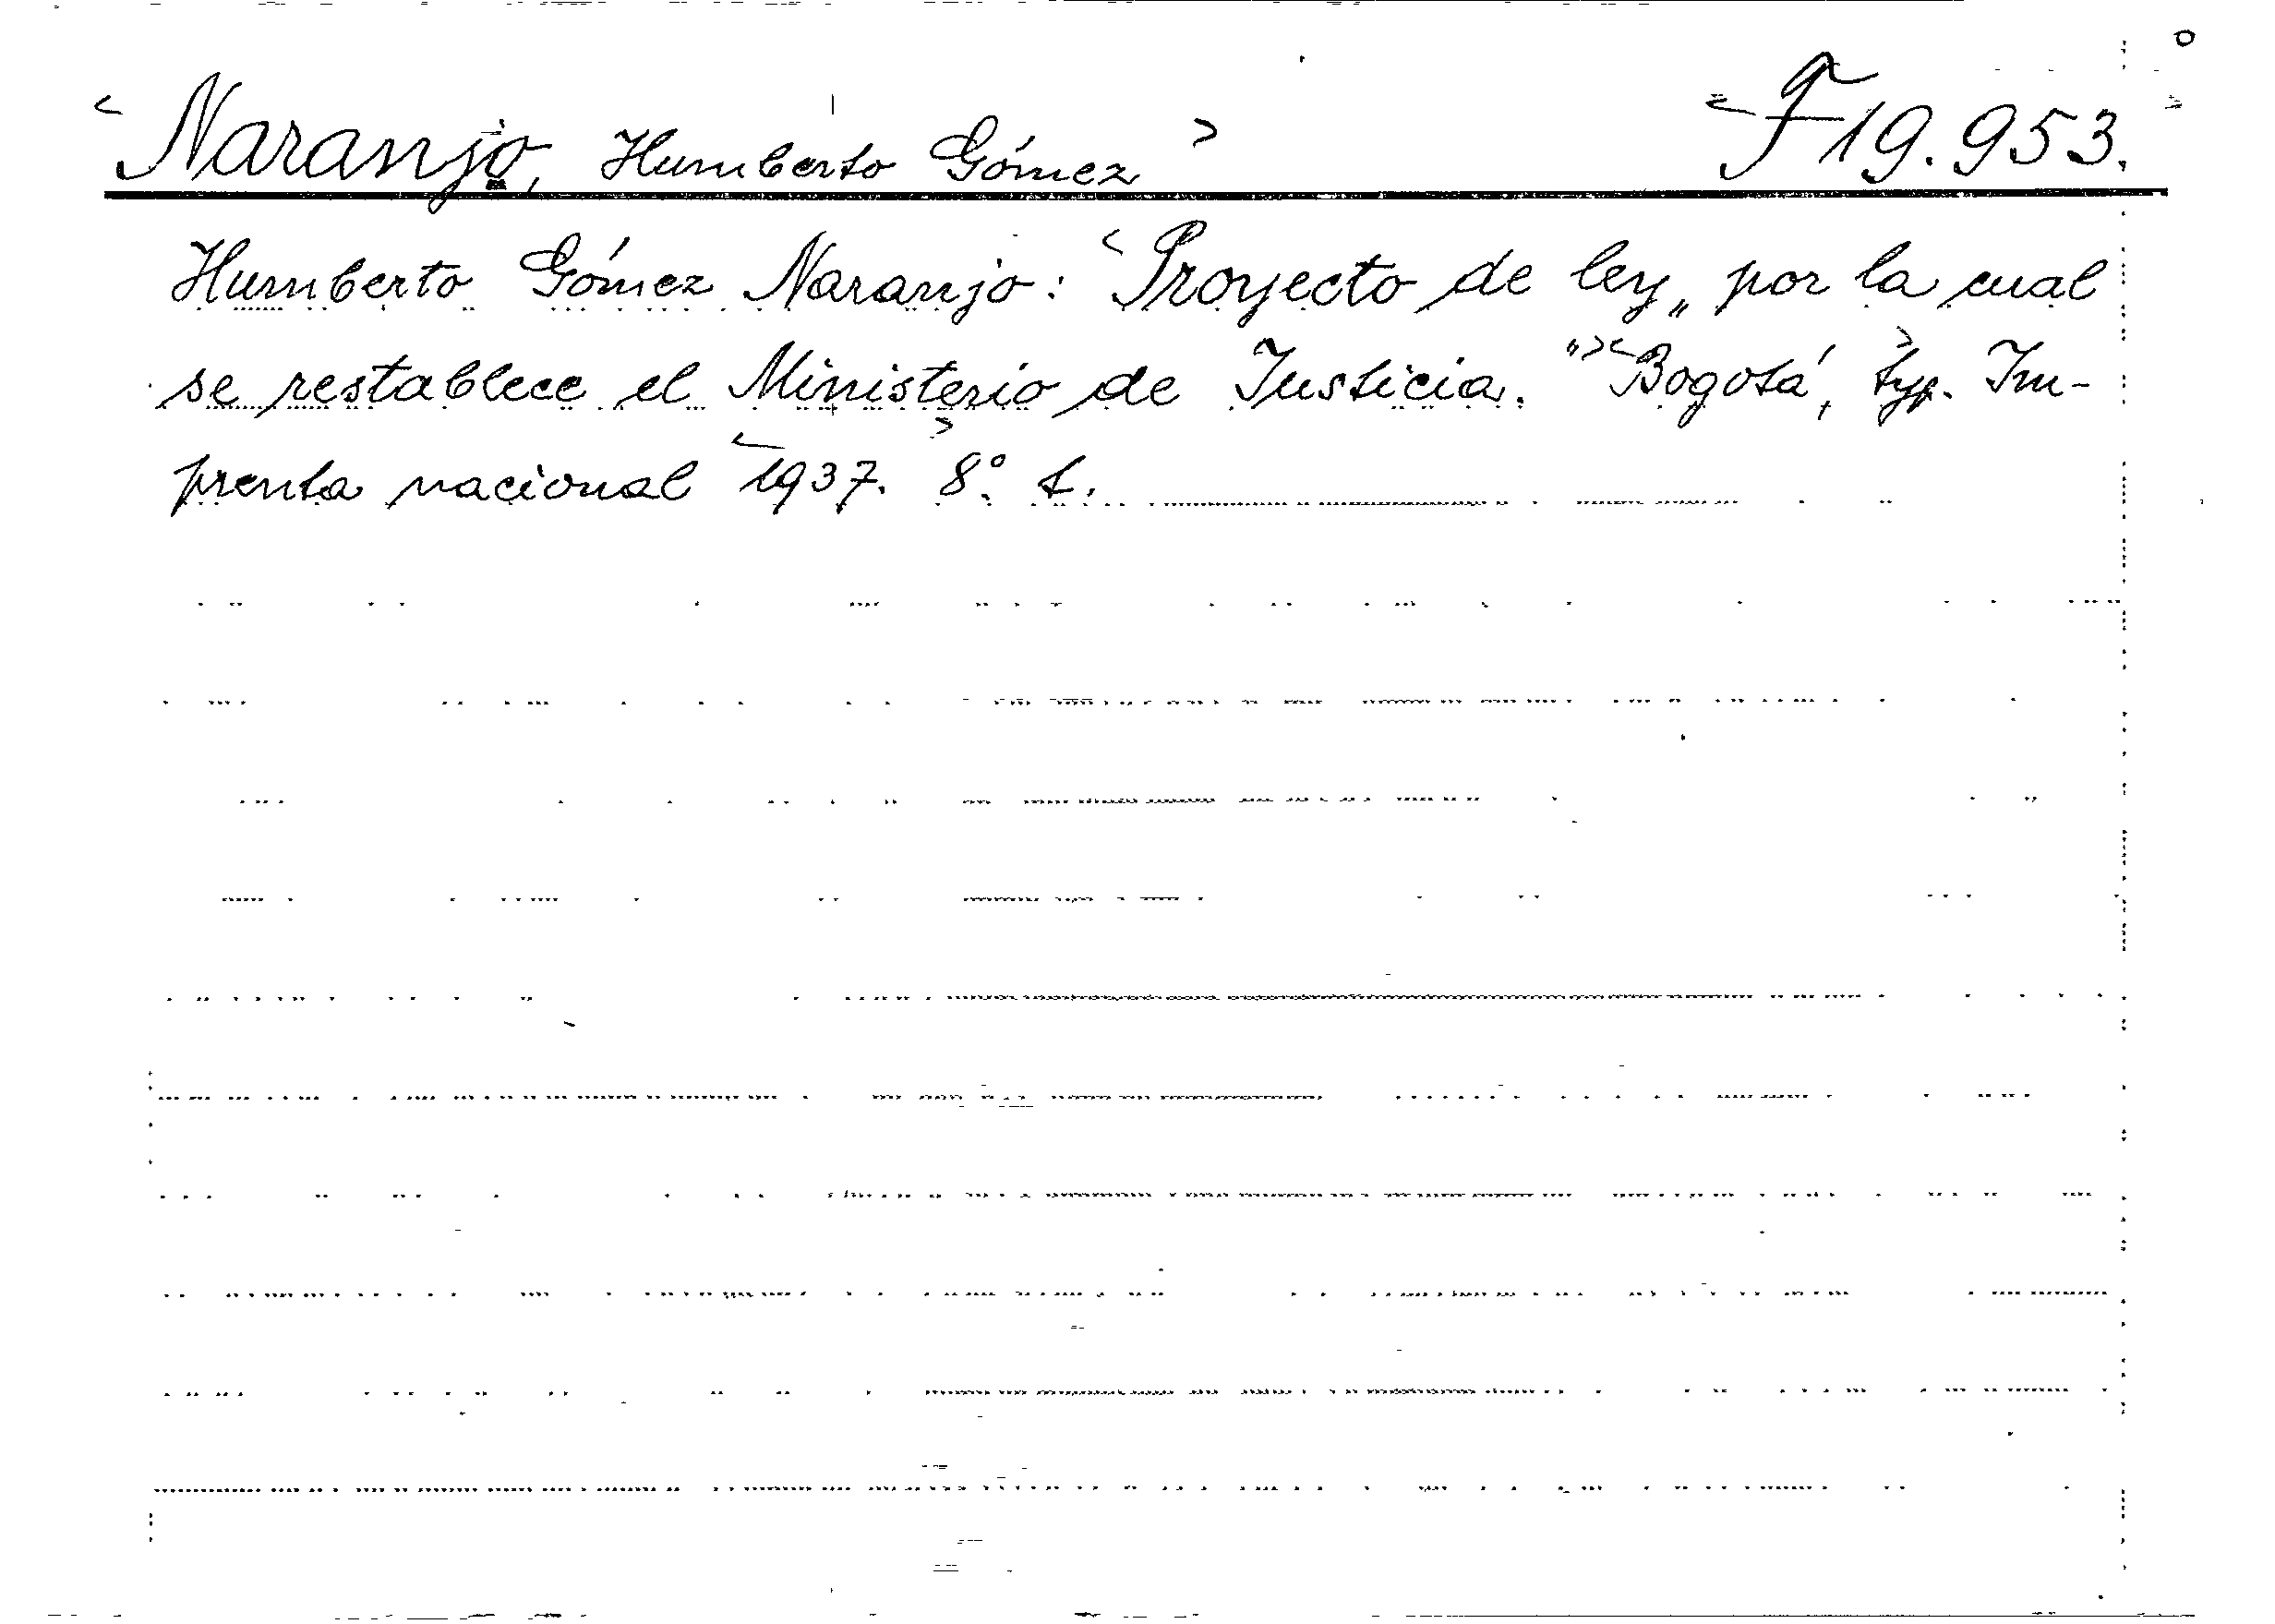 <Naranjo, Humberto Gómez> <F 19.953.>
Humberto Gómez Naranjo: <Proyecto de ley „por la cual
se restablece el Ministerio de Justicia."><Bogotá,> typ. Im-
prenta nacional <1937.> 8°.